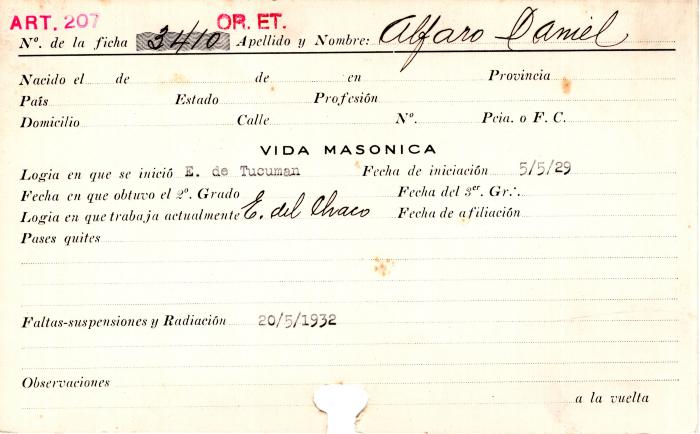 ART. 207 OR. ET.
Nº. de la ficha 3410 Apellido y Nombre: Alfaro Daniel
Nacido el de de en Provincia
País Estado Profesión
Domicilio Calle Nº. Pcia. o F. C.
VIDA MASONICA
Logia en que se inició E. de Tucuman Fecha de iniciación 5/5/29
Fecha en que obtuvo el 2º. Grado Fecha del 3er. Gr∴
Logia en que trabaja actualmente E. del Chaco Fecha de afiliación
Pases quites
Faltas-suspensiones y Radiación 20/5/1932
Observaciones
a la vuelta